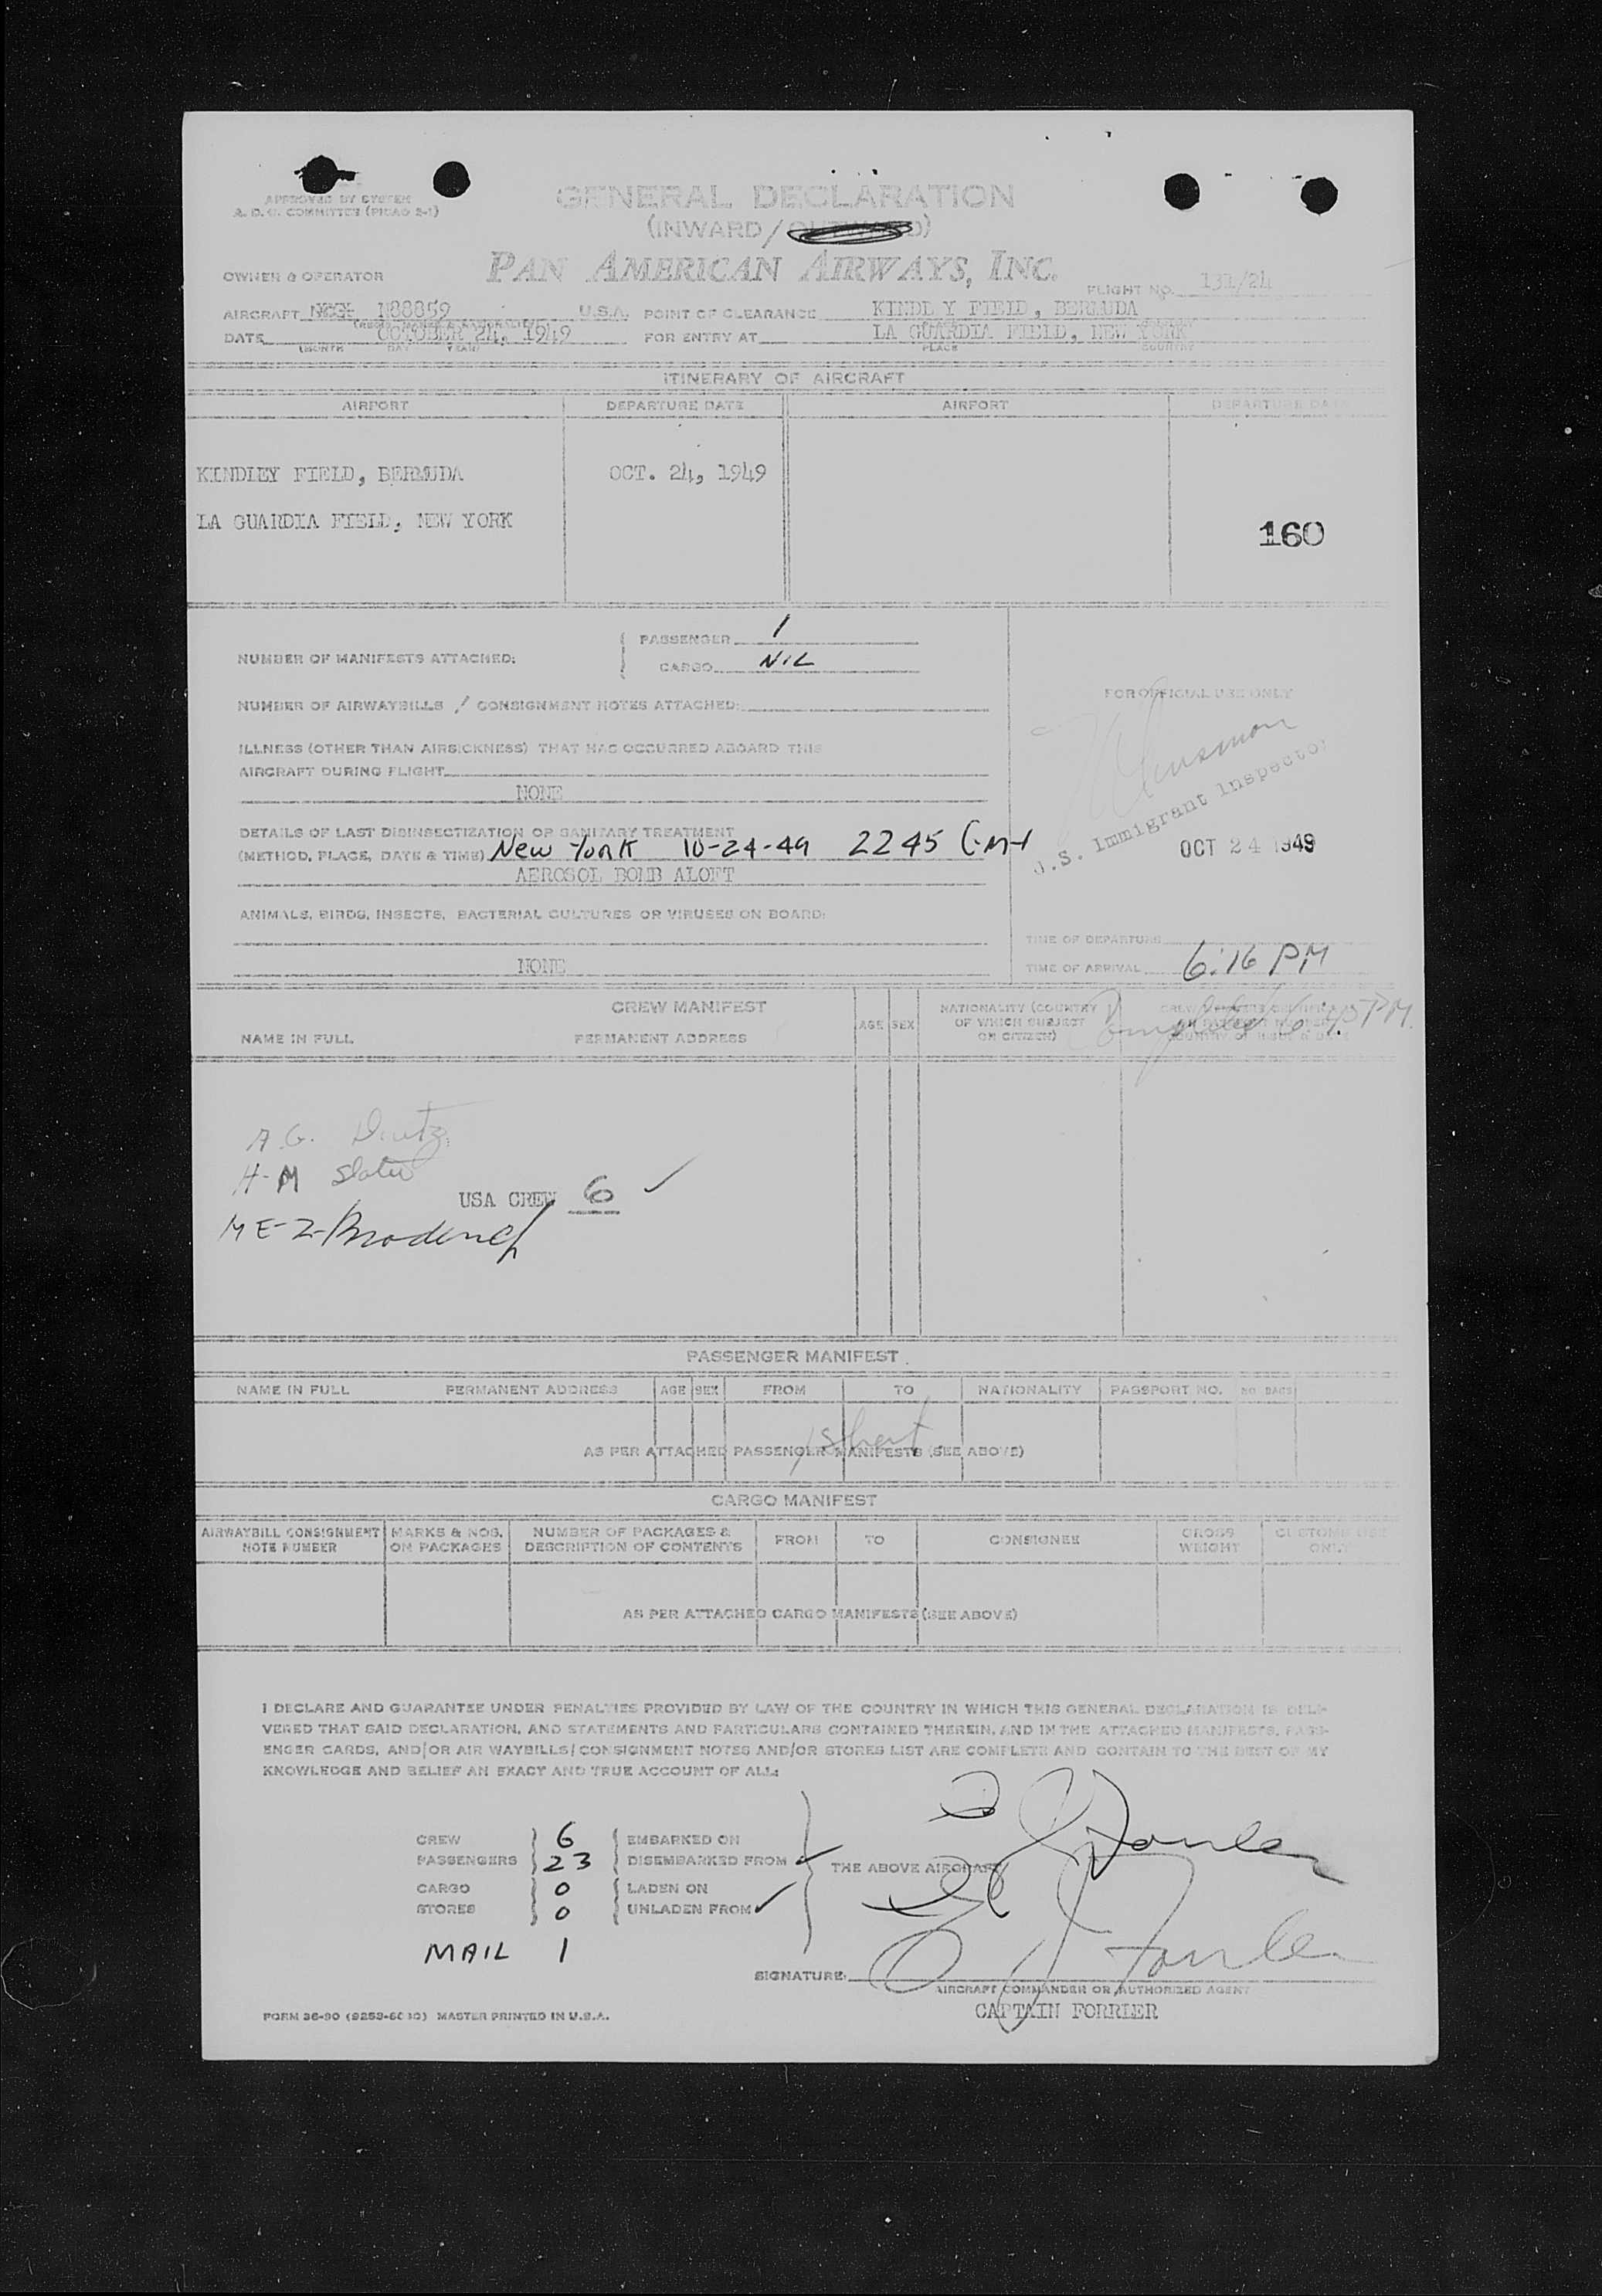 APPROVED BY SYSTEM
A. D. C. COMMITTEE (PICAO 2-1)
GENERAL DECLARATION
(INWARD/OUTWARD)
OWNER & OPERATOR PAN AMERICAN AIRWAYS, INC. FLIGHT NO. 131/24
AIRCRAFT N88859 U.S.A. POINT OF CLEARANCE KINDL Y FIELD, BERMUDA
DATE OCTOBER 24, 1949 FOR ENTRY AT LA GUARDIA FIELD, NEW YORK
(MONTH DAY YEAR) PLACE COUNTRY
ITINERARY OF AIRCRAFT
AIRPORT DEPARTURE DATE AIRPORT DEPARTURE DATE
KINDLEY FIELD, BERMUDA OCT. 24, 1949
LA GUARDIA FIELD, NEW YORK
160
NUMBER OF MANIFESTS ATTACHED: PASSENGER 1
CARGO NIL
NUMBER OF AIRWAYBILLS / CONSIGNMENT NOTES ATTACHED:
FOR OFFICIAL USE ONLY
ILLNESS (OTHER THAN AIRSICKNESS) THAT HAS OCCURRED ABOARD THIS
AIRCRAFT DURING FLIGHT
NONE
DETAILS OF LAST DISINSECTIZATION OR SANITARY TREATMENT
(METHOD, PLACE, DATE & TIME) New York 10-24-49 2245 GMT
AEROSOL BOMB ALOFT
U.S. Immigrant Inspector
OCT 24 1949
ANIMALS, BIRDS, INSECTS, BACTERIAL CULTURES OR VIRUSES ON BOARD:
NONE
TIME OF DEPARTURE
TIME OF ARRIVAL 6:16 PM
CREW MANIFEST
NAME IN FULL PERMANENT ADDRESS AGE SEX NATIONALITY (COUNTRY
OF WHICH SUBJECT
OR CITIZEN)
A.G.
H-M Slater
USA CREW 6 ✓
ME-2-Broderick
PASSENGER MANIFEST
NAME IN FULL PERMANENT ADDRESS AGE SEX FROM TO NATIONALITY PASSPORT NO. NO. BAGS
1 sheet
AS PER ATTACHED PASSENGER MANIFESTS (SEE ABOVE)
CARGO MANIFEST
AIRWAYBILL CONSIGNMENT NOTE NUMBER MARKS & NOS. ON PACKAGES NUMBER OF PACKAGES & DESCRIPTION OF CONTENTS FROM TO CONSIGNEE GROSS WEIGHT CUSTOMS USE ONLY
AS PER ATTACHED CARGO MANIFESTS (SEE ABOVE)
I DECLARE AND GUARANTEE UNDER PENALTIES PROVIDED BY LAW OF THE COUNTRY IN WHICH THIS GENERAL DECLARATION IS DELI-
VERED THAT SAID DECLARATION, AND STATEMENTS AND PARTICULARS CONTAINED THEREIN, AND IN THE ATTACHED MANIFESTS, PASS-
ENGER CARDS, AND/OR AIR WAYBILLS/CONSIGNMENT NOTES AND/OR STORES LIST ARE COMPLETE AND CONTAIN TO THE BEST OF MY
KNOWLEDGE AND BELIEF AN EXACT AND TRUE ACCOUNT OF ALL:
CREW 6 EMBARKED ON
PASSENGERS 23 DISEMBARKED FROM ✓ THE ABOVE AIRCRAFT
CARGO 0 LADEN ON
STORES 0 UNLADEN FROM ✓
MAIL 1
SIGNATURE:
AIRCRAFT COMMANDER OR AUTHORIZED AGENT
CAPTAIN FORRLER
FORM 36-90 MASTER PRINTED IN U.S.A.